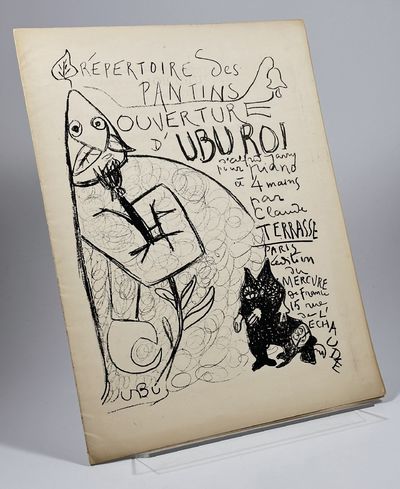 RÉPERTOIRE des
PANTINS
OUVERTURE
D'UBU ROI
d'alfred Jarry
pour piano
à 4 mains
par
Claude
TERRASSE
PARIS
édition
du
MERCURE
de france
15 rue
de L'
ECHAUDÉ
UBU